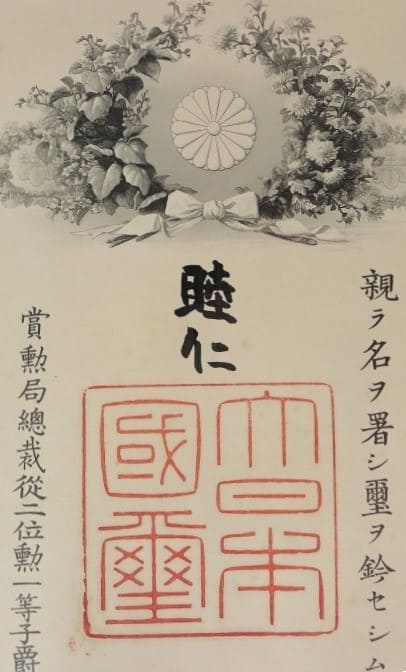 親ラ名ヲ署シ璽ヲ鈐セシム
睦仁
大日本
國璽
賞勲局總裁從二位勲一等子爵